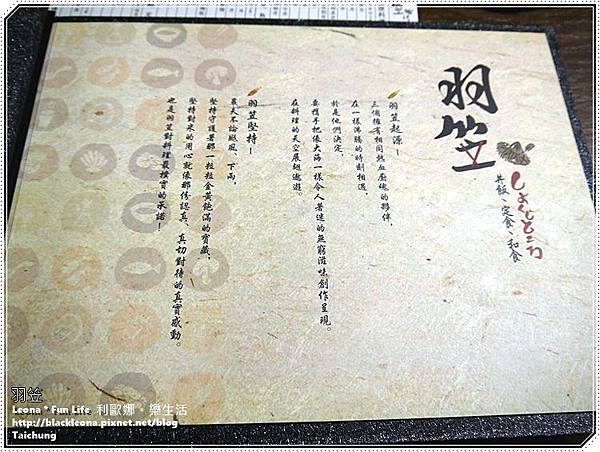 羽笠
しょくじどころ
丼飯、定食、和食
羽笠起源－
三個擁有相同熱血廚魂的夥伴，
在一樣沸騰的時刻相遇，
於是他們決定，
要攜手把像大海一樣令人著迷的無窮滋味創作呈現。
在料理的天空展翅遨遊。
羽笠堅持－
農夫不論颱風、下雨，
堅持守護著那一粒粒金黃飽滿的寶藏，
堅持對米的用心就像那份認真、真切對待的真實感動。
也是羽笠對料理最樸實的承諾！
羽笠
Leona * Fun Life 利歐娜。樂生活
http://blackleona.pixnet.net/blog
Taichung